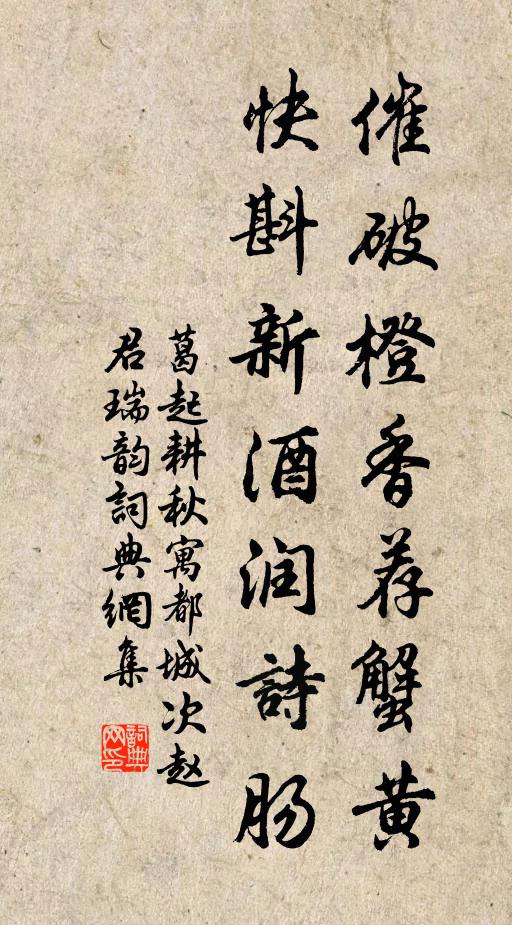 催破橙香荐蟹黄
快斟新酒润詩肠
葛起耕秋寓都城次赵
君瑞韵詞典網集
詞典
网印